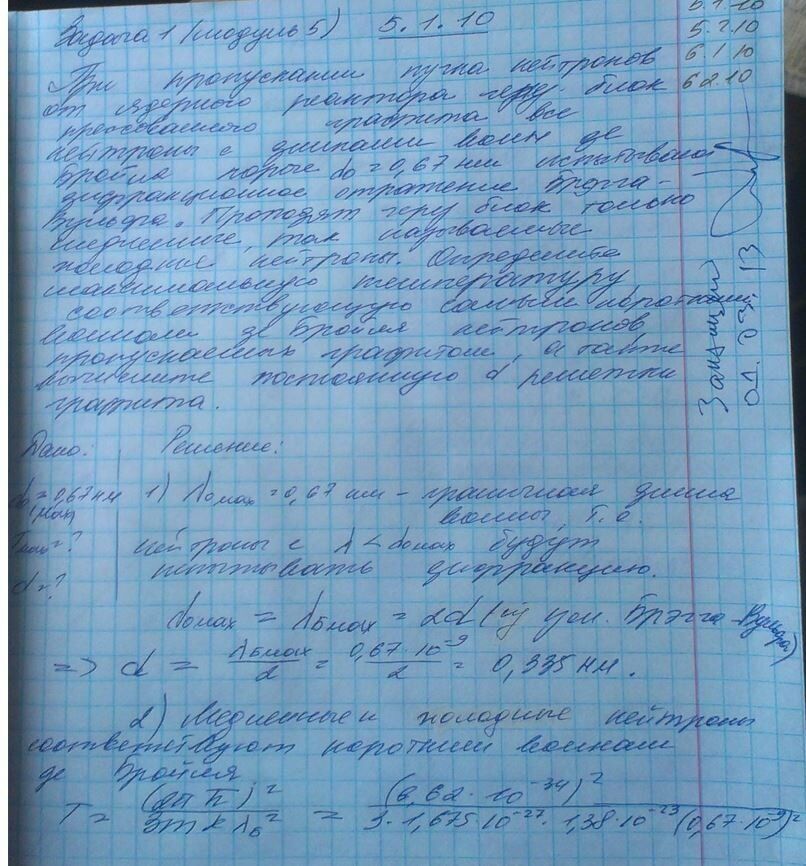 Задача 1 (модуль 5) 5.1.10
5.1.10
5.2.10
6.1.10
6.2.10
При пропускании пучка нейтронов
от ядерного реактора через блок
прессованного графита все
нейтроны с длинами волн де
Бройля короче λ0 = 0,67 нм испытывают
дифракционное отражение Брэгга-
Вульфа. Проходят через блок только
медленные, так называемые
холодные нейтроны. Определите
максимальную температуру,
соответствующую самым коротким
волнам де Бройля нейтронов,
пропускаемых графитом, а также
вычислите постоянную d решетки
графита.
01.03.13
Дано: Решение:
λ0 = 0,67 нм 1) λ0max = 0,67 нм - граничная длина
(max) волны, т.е.
Tmax = ? нейтроны с λ < λ0max будут
d = ? испытывать дифракцию.
λ0max = λБmax = 2d (из усл. Брэгга-Вульфа)
=> d = λБmax / 2 = 0,67·10^-9 / 2 = 0,335 нм.
2) Медленные и холодные нейтроны
соответствуют коротким волнам
де Бройля
T = (2πħ)^2 / 3mkλБ^2 = (6,62·10^-34)^2 / 3·1,675·10^-27·1,38·10^-23 (0,67·10^-9)^2